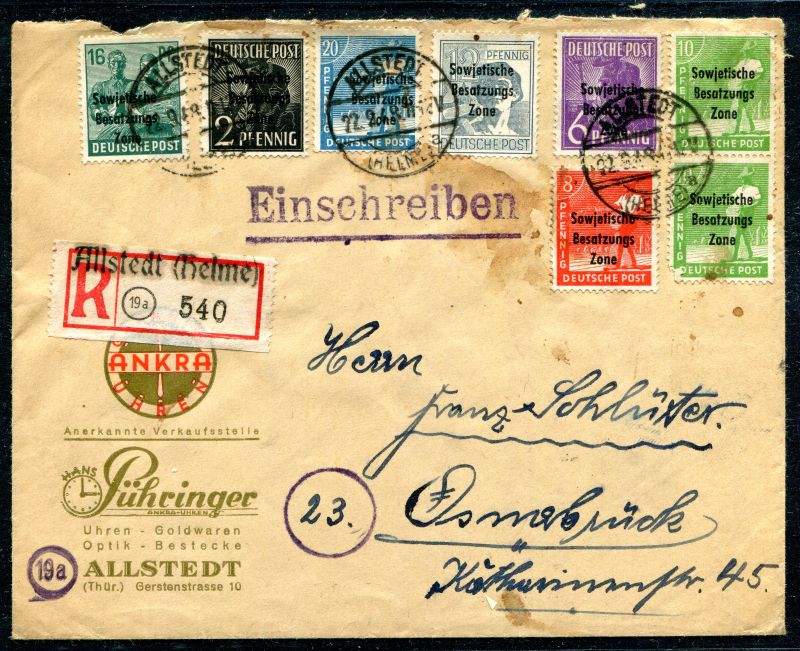 16 PFG
Sowjetische
Besatzungs
Zone
DEUTSCHE POST
DEUTSCHE POST
Sowjetische
Besatzungs
Zone
2 PFENNIG
20
PFENNIG
Sowjetische
Besatzungs
Zone
DEUTSCHE POST
12 PFENNIG
Sowjetische
Besatzungs
Zone
DEUTSCHE POST
DEUTSCHE POST
Sowjetische
Besatzungs
Zone
6 PFENNIG
10
PFENNIG
Sowjetische
Besatzungs
Zone
DEUTSCHE POST
8
PFENNIG
Sowjetische
Besatzungs
Zone
DEUTSCHE POST
PFENNIG
Sowjetische
Besatzungs
Zone
DEUTSCHE POST
ALLSTEDT
(HELME)
a
ALLSTEDT
22.9.48
(HELME)
a
ALLSTEDT
(HELME)
a
Einschreiben
Allstedt (Helme)
R
19a
540
ANKRA
UHREN
Anerkannte Verkaufsstelle
HANS
Pühringer
ANKRA-UHREN
Uhren - Goldwaren
Optik - Bestecke
19a
ALLSTEDT
(Thür.) Gerstenstrasse 10
Herrn
Franz Schlüter.
23.
Osnabrück
Katharinenstr. 45.